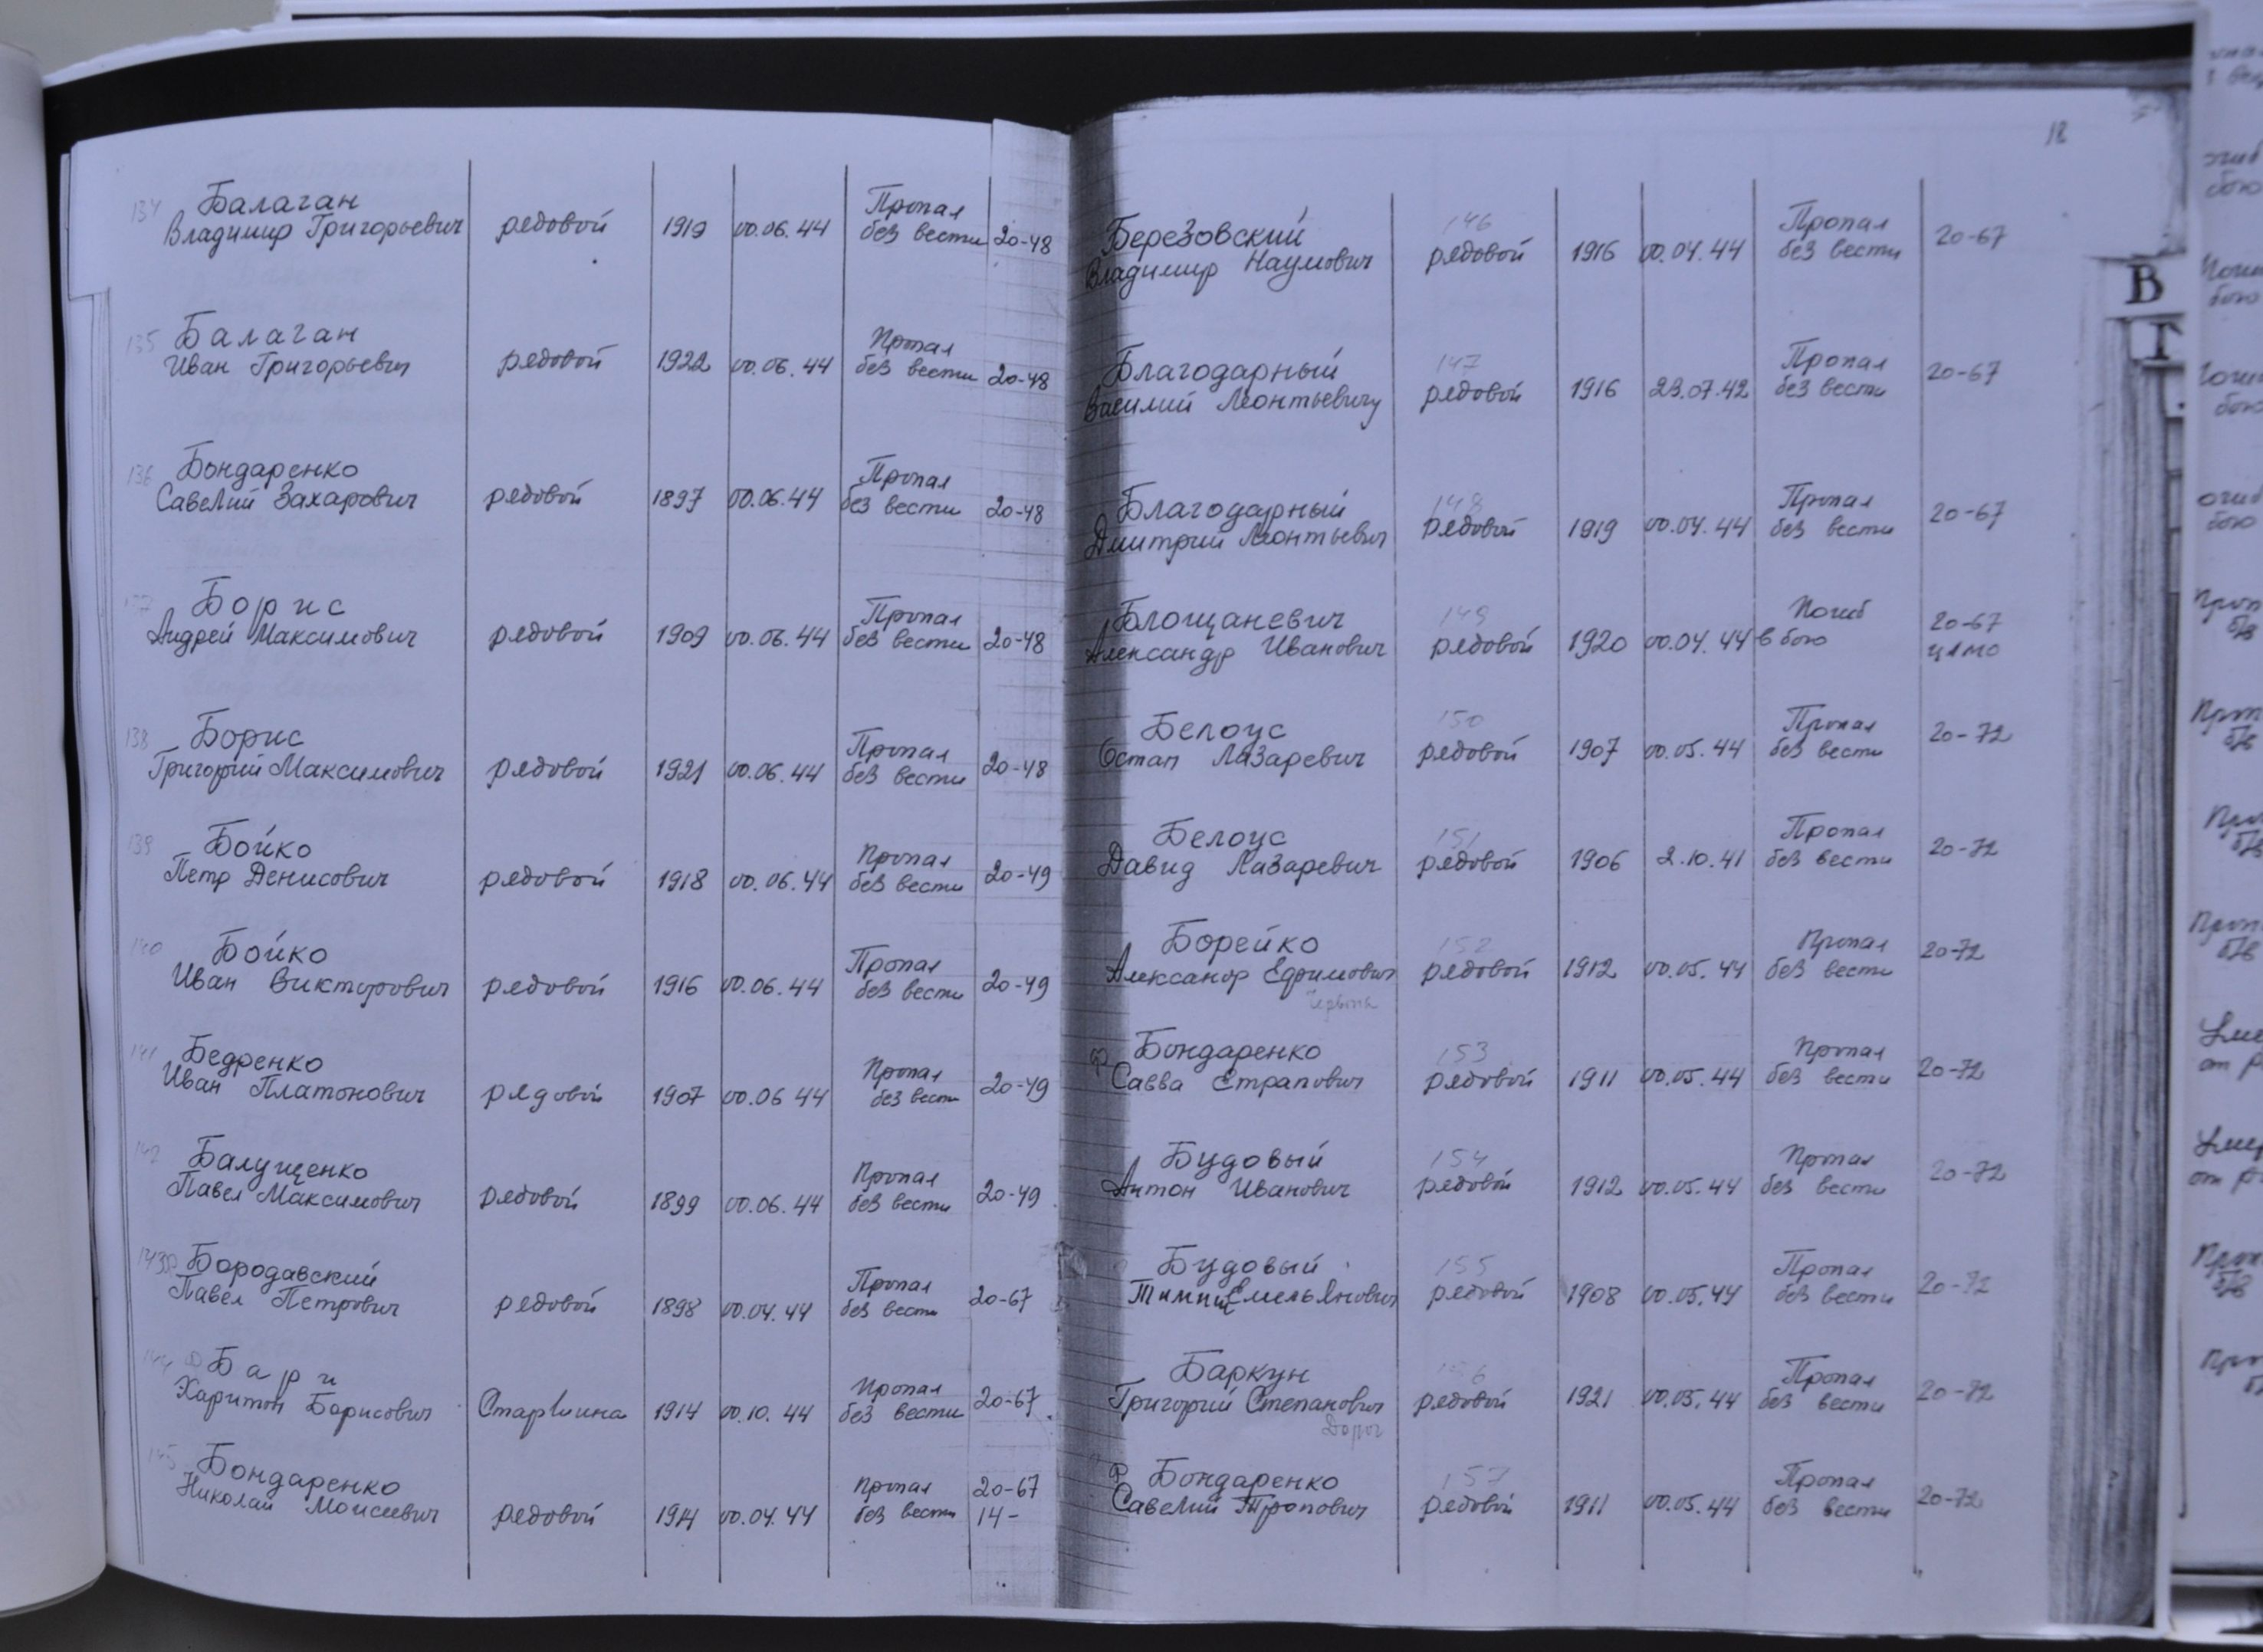 134 Балаган
Владимир Григорьевич рядовой 1919 00.06.44 Пропал без вести 20-48
135 Балаган
Иван Григорьевич рядовой 1922 00.06.44 Пропал без вести 20-48
136 Бондаренко
Савелий Захарович рядовой 1897 00.06.44 Пропал без вести 20-48
137 Борис
Андрей Максимович рядовой 1909 00.06.44 Пропал без вести 20-48
138 Борис
Григорий Максимович рядовой 1921 00.06.44 Пропал без вести 20-48
139 Бойко
Петр Денисович рядовой 1918 00.06.44 Пропал без вести 20-49
140 Бойко
Иван Викторович рядовой 1916 00.06.44 Пропал без вести 20-49
141 Бедренко
Иван Платонович рядовой 1907 00.06 44 Пропал без вести 20-49
142 Балущенко
Павел Максимович рядовой 1899 00.06.44 Пропал без вести 20-49
143 Бородавский
Павел Петрович рядовой 1898 00.04.44 Пропал без вести 20-67
144 Бари
Харитон Борисович Старшина 1914 00.10.44 Пропал без вести 20-67
145 Бондаренко
Николай Моисеевич рядовой 1914 00.04.44 Пропал без вести 20-67
14-
18
Березовский 146
Владимир Наумович рядовой 1916 00.04.44 Пропал без вести 20-67
Благодарный 147
Василий Леонтьевич рядовой 1916 23.07.42 Пропал без вести 20-67
Благодарный 148
Дмитрий Леонтьевич рядовой 1919 00.04.44 Пропал без вести 20-67
Блощаневич 149
Александр Иванович рядовой 1920 00.04.44 Погиб в бою 20-67
ЦАМО
Белоус 150
Остап Лазаревич рядовой 1907 00.05.44 Пропал без вести 20-72
Белоус 151
Давид Лазаревич рядовой 1906 2.10.41 Пропал без вести 20-72
Борейко 152
Александр Ефимович рядовой 1912 00.05.44 Пропал без вести 20-72
Бондаренко 153
Савва Страпович рядовой 1911 00.05.44 Пропал без вести 20-72
Будовый 154
Антон Иванович рядовой 1912 00.05.44 Пропал без вести 20-72
Будовый 155
Емельянович рядовой 1908 00.05.44 Пропал без вести 20-72
Баркун 156
Григорий Степанович рядовой 1921 00.05.44 Пропал без вести 20-72
Бондаренко 157
Савелий Тропович рядовой 1911 00.05.44 Пропал без вести 20-72
В
Г